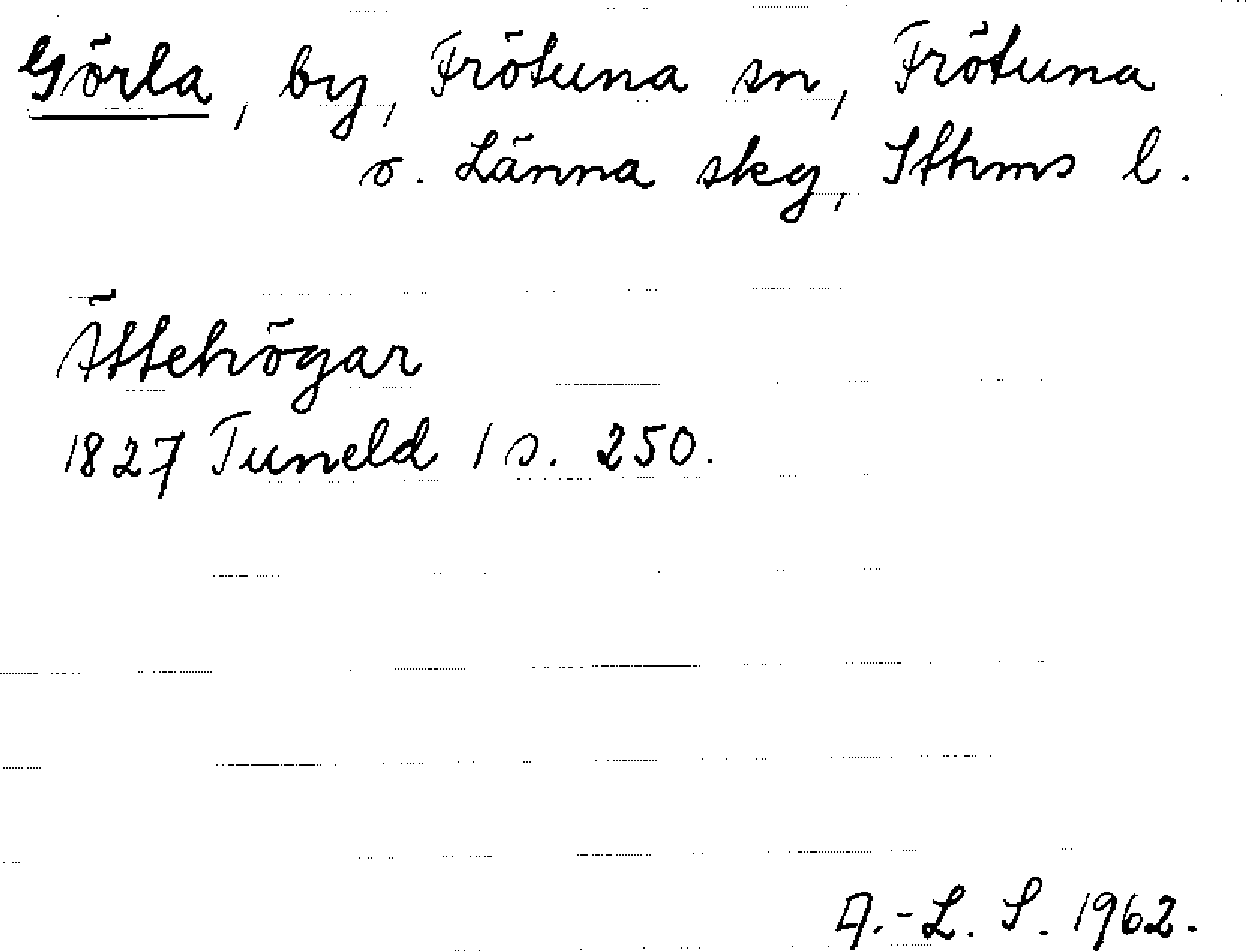 Görla, by, Frötuna sn, Frötuna
o. Länna skg, Sthms l.
Ättehögar
1827 Tuneld 1 s. 250.
A.-L. S. 1962.